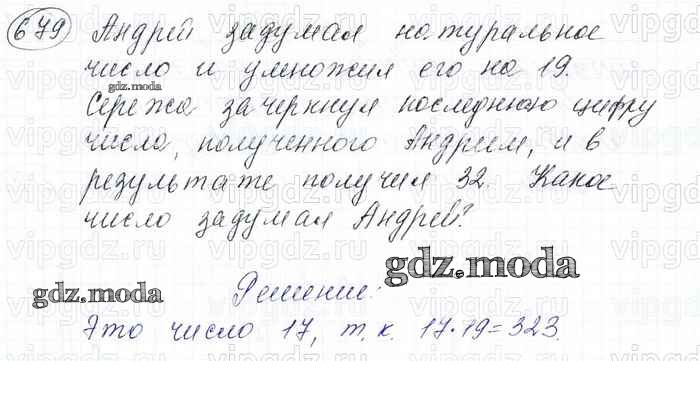 679 Андрей задумал натуральное
число и умножил его на 19.
gdz.moda
Сережа зачеркнул последнюю цифру
числа, полученного Андреем, и в
результате получил 32. Какое
число задумал Андрей?
gdz.moda
gdz.moda
Решение:
Это число 17, т.к. 17·19=323.